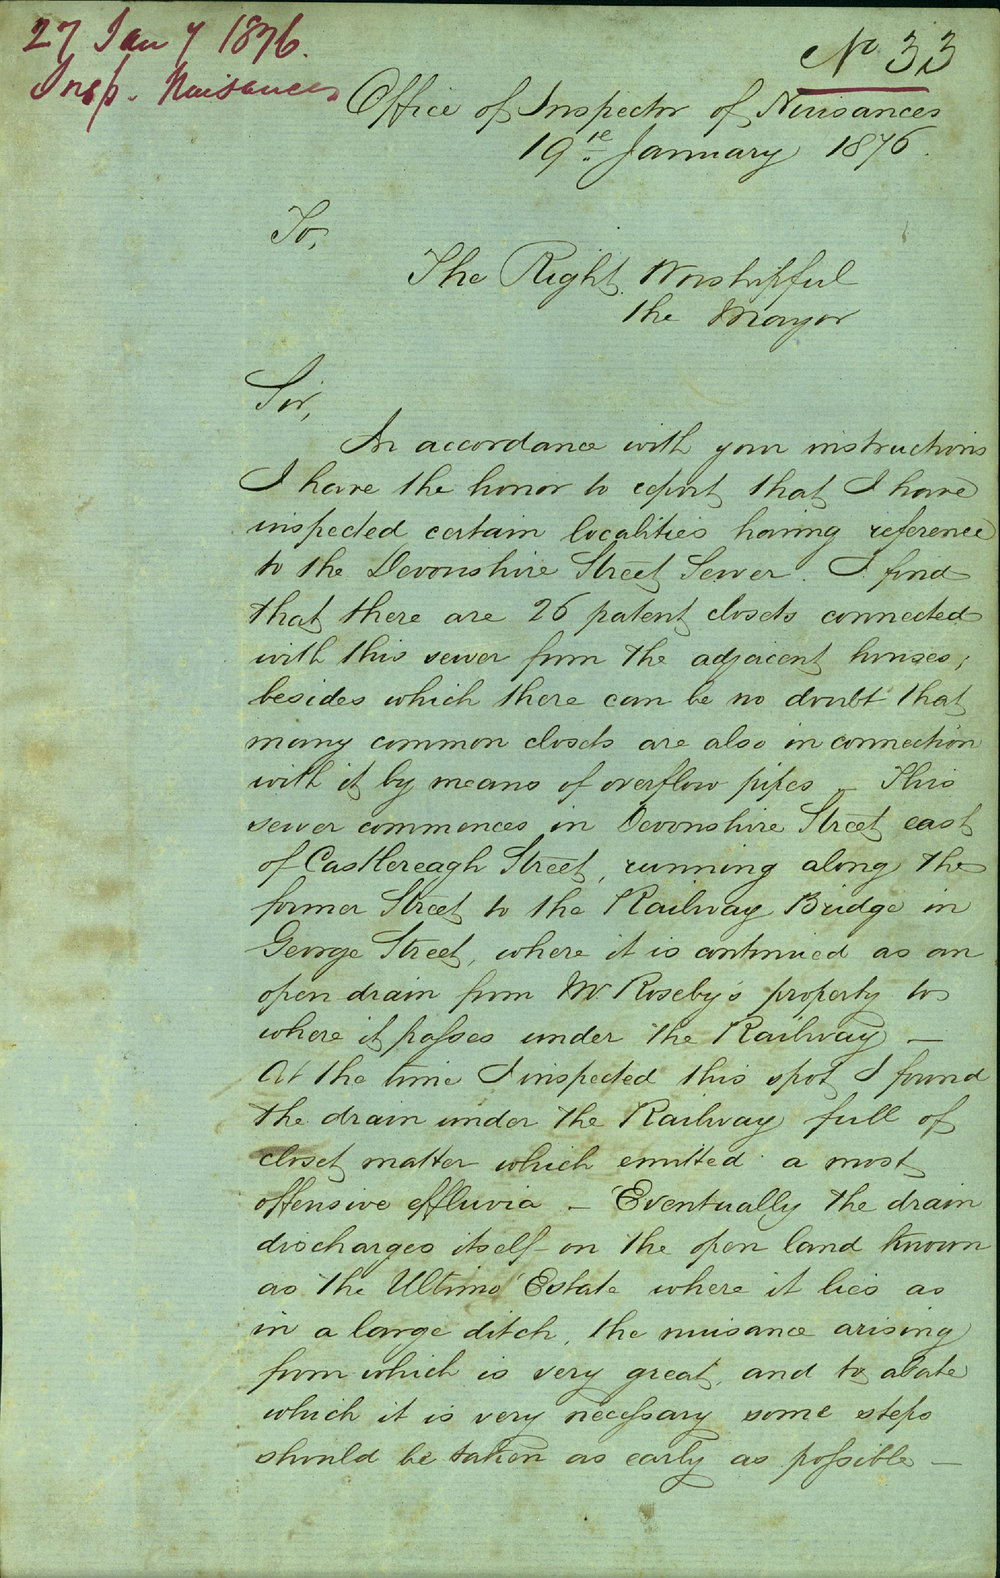 27 Jany 1876.
Insp. Nuisances
No 33
Office of Inspector of Nuisances
19th January 1876.
To,
The Right Worshipful
the Mayor
Sir,
In accordance with your instructions
I have the honor to report that I have
inspected certain localities having reference
to the Devonshire Street Sewer. I find
that there are 26 patent closets connected
with this sewer from the adjacent houses;
besides which there can be no doubt that
many common closets are also in connection
with it by means of overflow pipes – This
sewer commences in Devonshire Street east
of Castlereagh Street, running along the
former Street to the Railway Bridge in
George Street, where it is continued as an
open drain from Mr Roseby's property to
where it passes under the Railway –
At the time I inspected this spot I found
the drain under the Railway full of
closet matter which emitted a most
offensive effluvia – Eventually the drain
discharges itself on the open land known
as the Ultimo Estate where it lies as
in a large ditch, the nuisance arising
from which is very great, and to abate
which it is very necessary some steps
should be taken as early as possible –